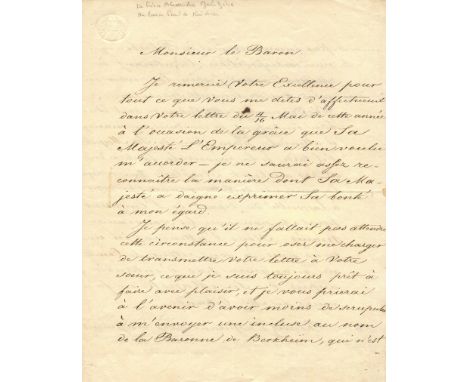 Monsieur le Baron
Je remercie Votre Excellence pour
tout ce que vous me dites d'affectueux
dans Votre lettre du 4/16 Mai de cette année
à l'occasion de la grâce que Sa
Majesté L'Empereur a bien voulu
m'accorder – je ne saurai assez re-
connaître la manière dont Sa Ma-
jesté a daigné exprimer Sa bonté
à mon égard.
Je pense qu'il ne fallait pas attendre
cette circonstance pour oser me charger
de transmettre Votre lettre à Votre
sœur, ce que je suis toujours prêt à
faire avec plaisir, et je vous prierai
à l'avenir d'avoir moins de scrupules
à m'envoyer une incluse au nom
de la Baronne de Berkheim, qui n'est